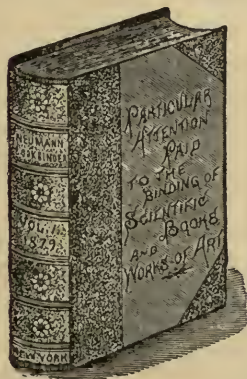 NEUMANN
BOOKBINDER
VOL. 1.
1879.
NEW YORK
PARTICULAR
ATTENTION
PAID
TO THE
BINDING OF
SCIENTIFIC
BOOKS
AND
WORKS OF ART